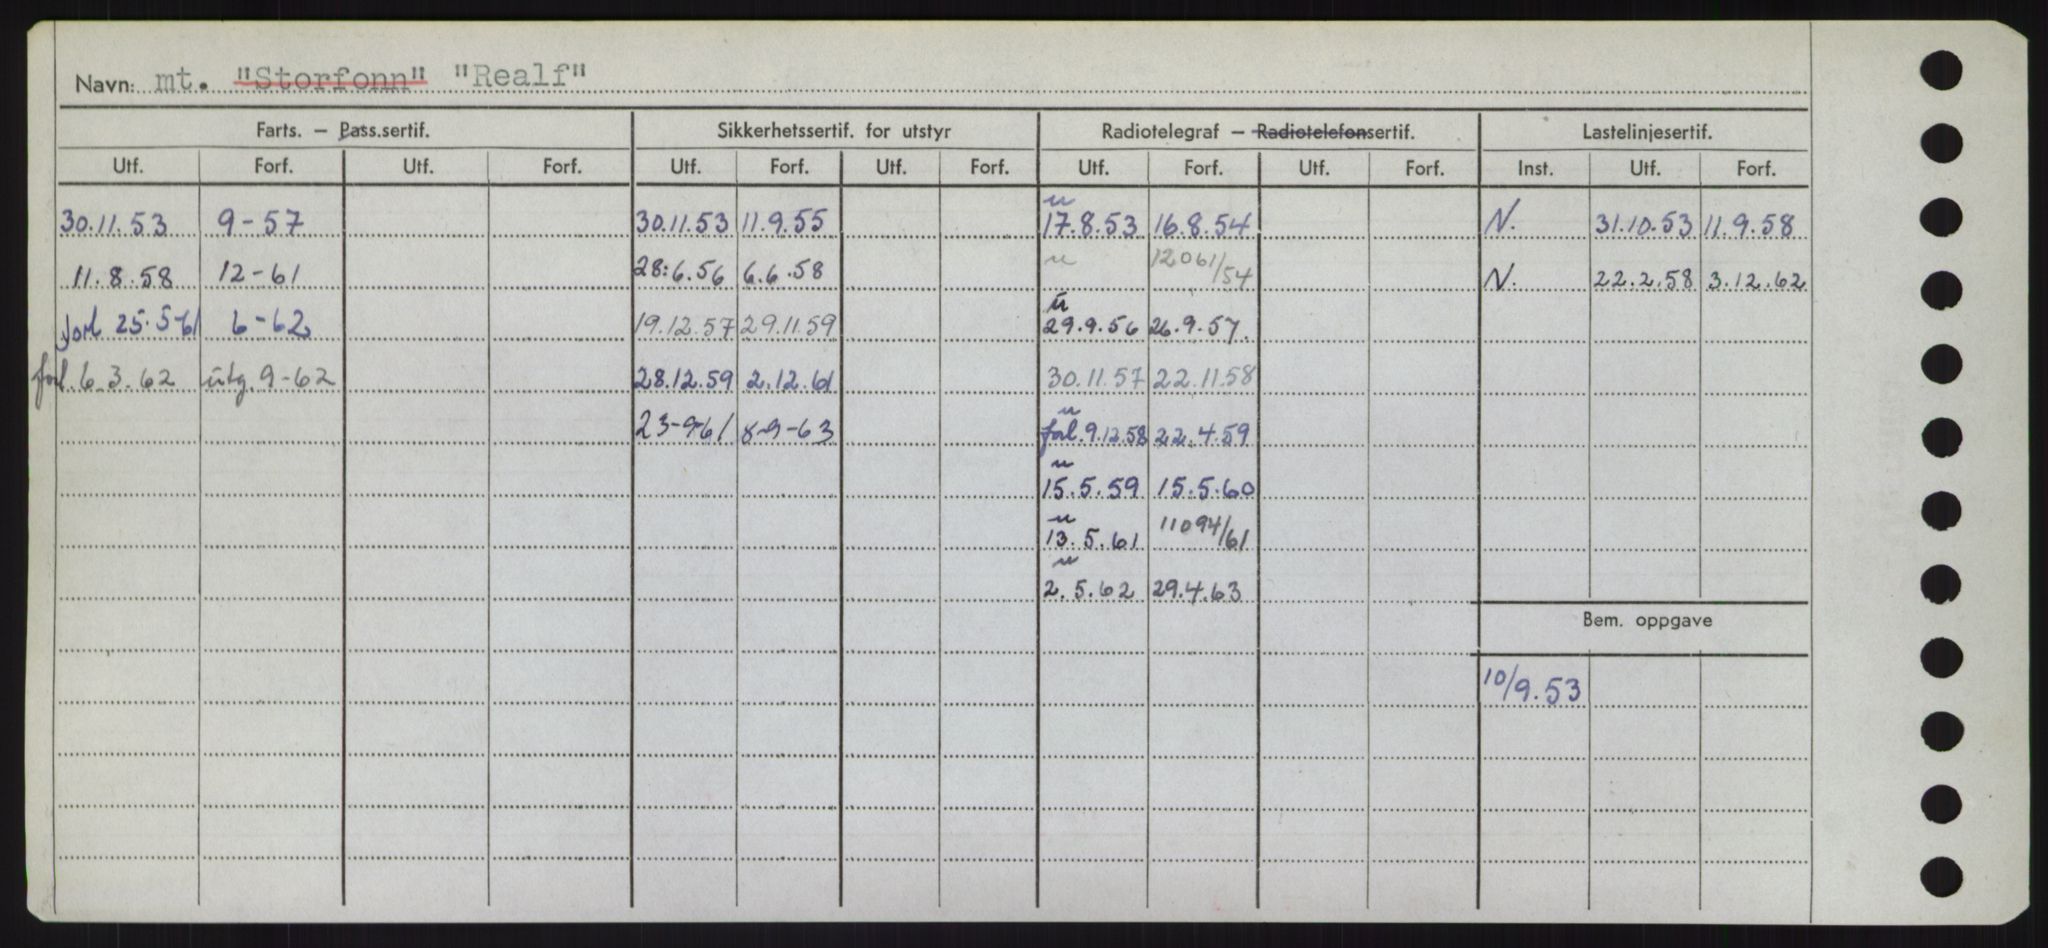 Navn: mt. "Storfonn" "Realf"
Farts. – Pass.sertif. Sikkerhetssertif. for utstyr Radiotelegraf – Radiotelefonsertif. Lastelinjesertif.
Utf. Forf. Utf. Forf. Utf. Forf. Utf. Forf. Utf. Forf. Utf. Forf. Inst. Utf. Forf.
30.11.53 9-57 30.11.53 11.9.55 u 17.8.53 16.8.54 N. 31.10.53 11.9.58
11.8.58 12-61 28.6.56 6.6.58 u 12061/54 N. 22.2.58 3.12.62
forl 25.5-61 6-62 19.12.57 29.11.59 u 29.9.56 26.9.57.
forl. 6.3.62 utg. 9-62 28.12.59 2.12.61 30.11.57 22.11.58
23-9-61 8-9-63 u forl. 9.12.58 22.4.59
u 15.5.59 15.5.60
u 13.5.61 11094/61
u 2.5.62 29.4.63
Bem. oppgave
10/9.53